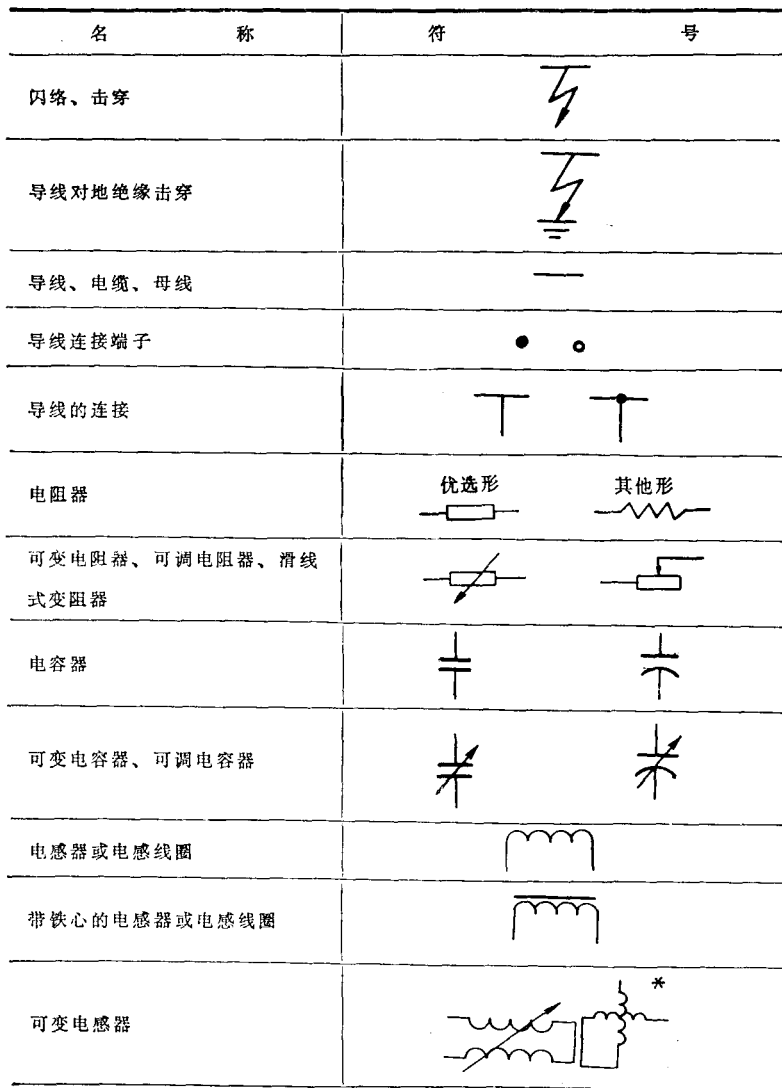 名 称 符 号
闪络、击穿
导线对地绝缘击穿
导线、电缆、母线
导线连接端子
导线的连接
电阻器 优选形 其他形
可变电阻器、可调电阻器、滑线
式变阻器
电容器
可变电容器、可调电容器
电感器或电感线圈
带铁心的电感器或电感线圈
*
可变电感器